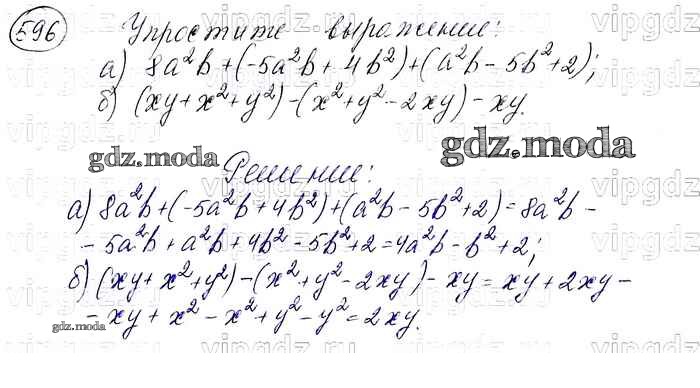 596
Упростите выражение:
а) 8a²b + (-5a²b + 4b²) + (a²b - 5b² + 2);
б) (xy + x² + y²) - (x² + y² - 2xy) - xy.
gdz.moda
gdz.moda
Решение:
а) 8a²b + (-5a²b + 4b²) + (a²b - 5b² + 2) = 8a²b -
- 5a²b + a²b + 4b² - 5b² + 2 = 4a²b - b² + 2;
б) (xy + x² + y²) - (x² + y² - 2xy) - xy = xy + 2xy -
- xy + x² - x² + y² - y² = 2xy.
gdz.moda
vipgdz.ru